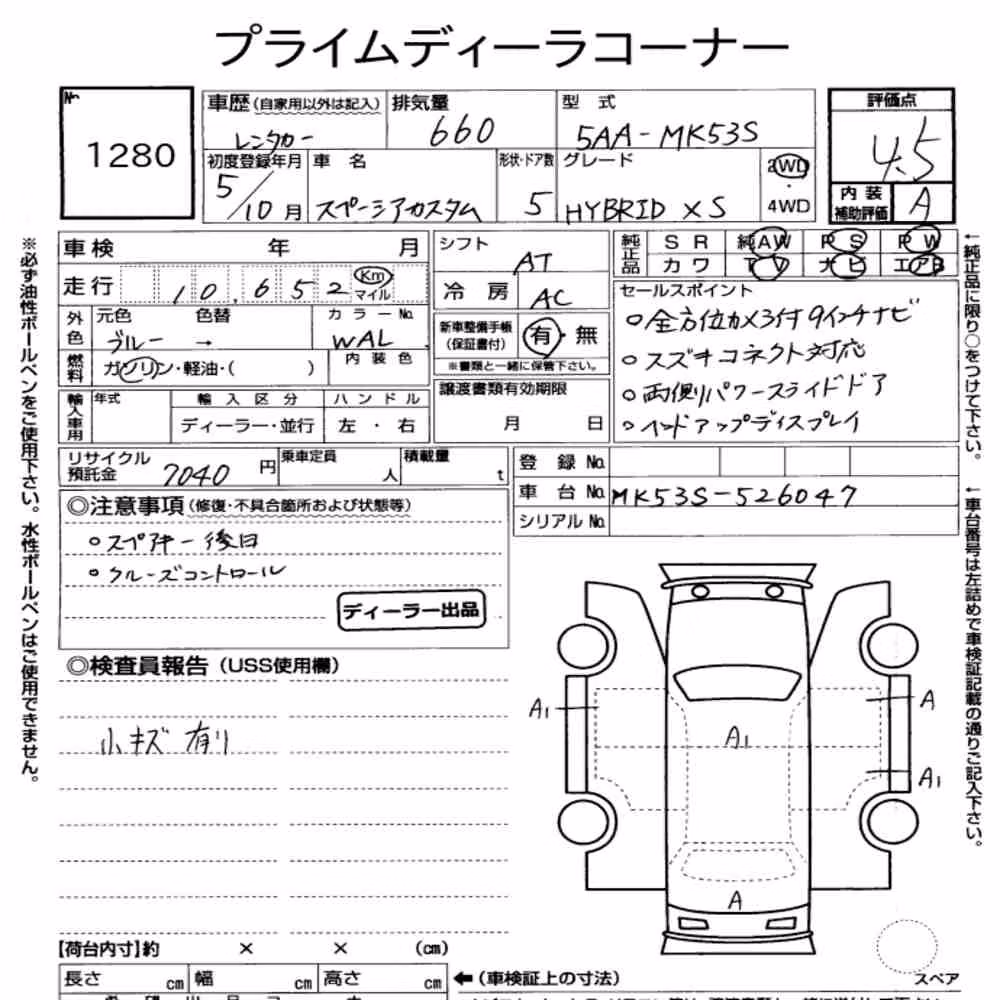 プライムディーラコーナー
No.
1280
車歴(自家用以外は記入)
レンタカー
排気量
660
型 式
5AA-MK53S
評価点
4.5
内装補助評価 A
初度登録年月
5/10月
車 名
スペーシアカスタム
形状・ドア数
5
グレード
HYBRID XS
2WD
・
4WD
車検 年 月
走行 10,652 Km マイル
外色
元色 色替
ブルー →
カラーNo.
WAL
燃料
ガソリン・軽油・( )
内装色
輸入車用
年式
輸入区分
ディーラー・並行
ハンドル
左・右
シフト
AT
冷房
AC
新車整備手帳(保証書付)
有・無
※書類と一緒に保管下さい。
譲渡書類有効期限
月 日
純正品
SR 純AW PS PW
カワ TV ナビ エアB
セールスポイント
○全方位カメラ付9インチナビ
○スズキコネクト対応
○両側パワースライドドア
○ヘッドアップディスプレイ
リサイクル預託金 7040円
乗車定員 人
積載量 t
登録No.
車台No. MK53S-526047
シリアルNo.
◎注意事項(修復・不具合箇所および状態等)
○スペアキー後日
○クルーズコントロール
ディーラー出品
◎検査員報告(USS使用欄)
小キズ 有り
A1
A
A1
A1
A
【荷台内寸】約 × × (cm)
長さ cm 幅 cm 高さ cm
←(車検証上の寸法)
スペア
※必ず油性ボールペンをご使用下さい。水性ボールペンはご使用できません。
←純正品に限り○をつけて下さい。
←車台番号は左詰めで車検証記載の通りご記入下さい。